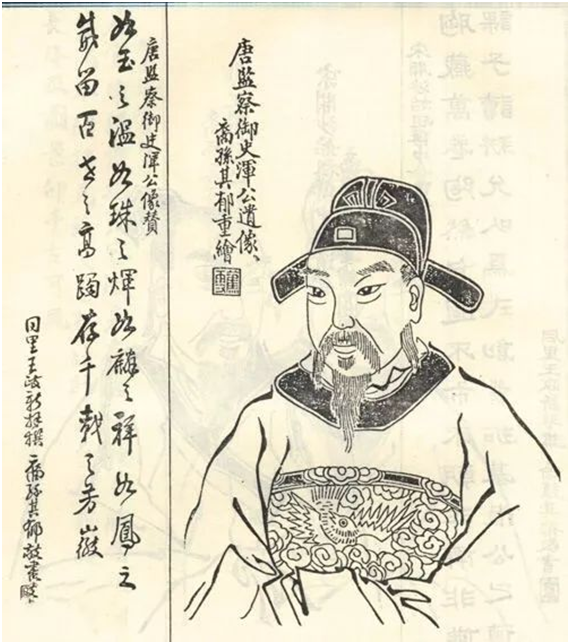 唐監察御史渾公遺像、
裔孫其郁重繪
唐監察御史渾公像贊
如玉之溫如珠之煇如麟之祥如鳳之
威留百世之高躅存千載之芳徽
同里王政新拜撰 裔孫其郁敬書